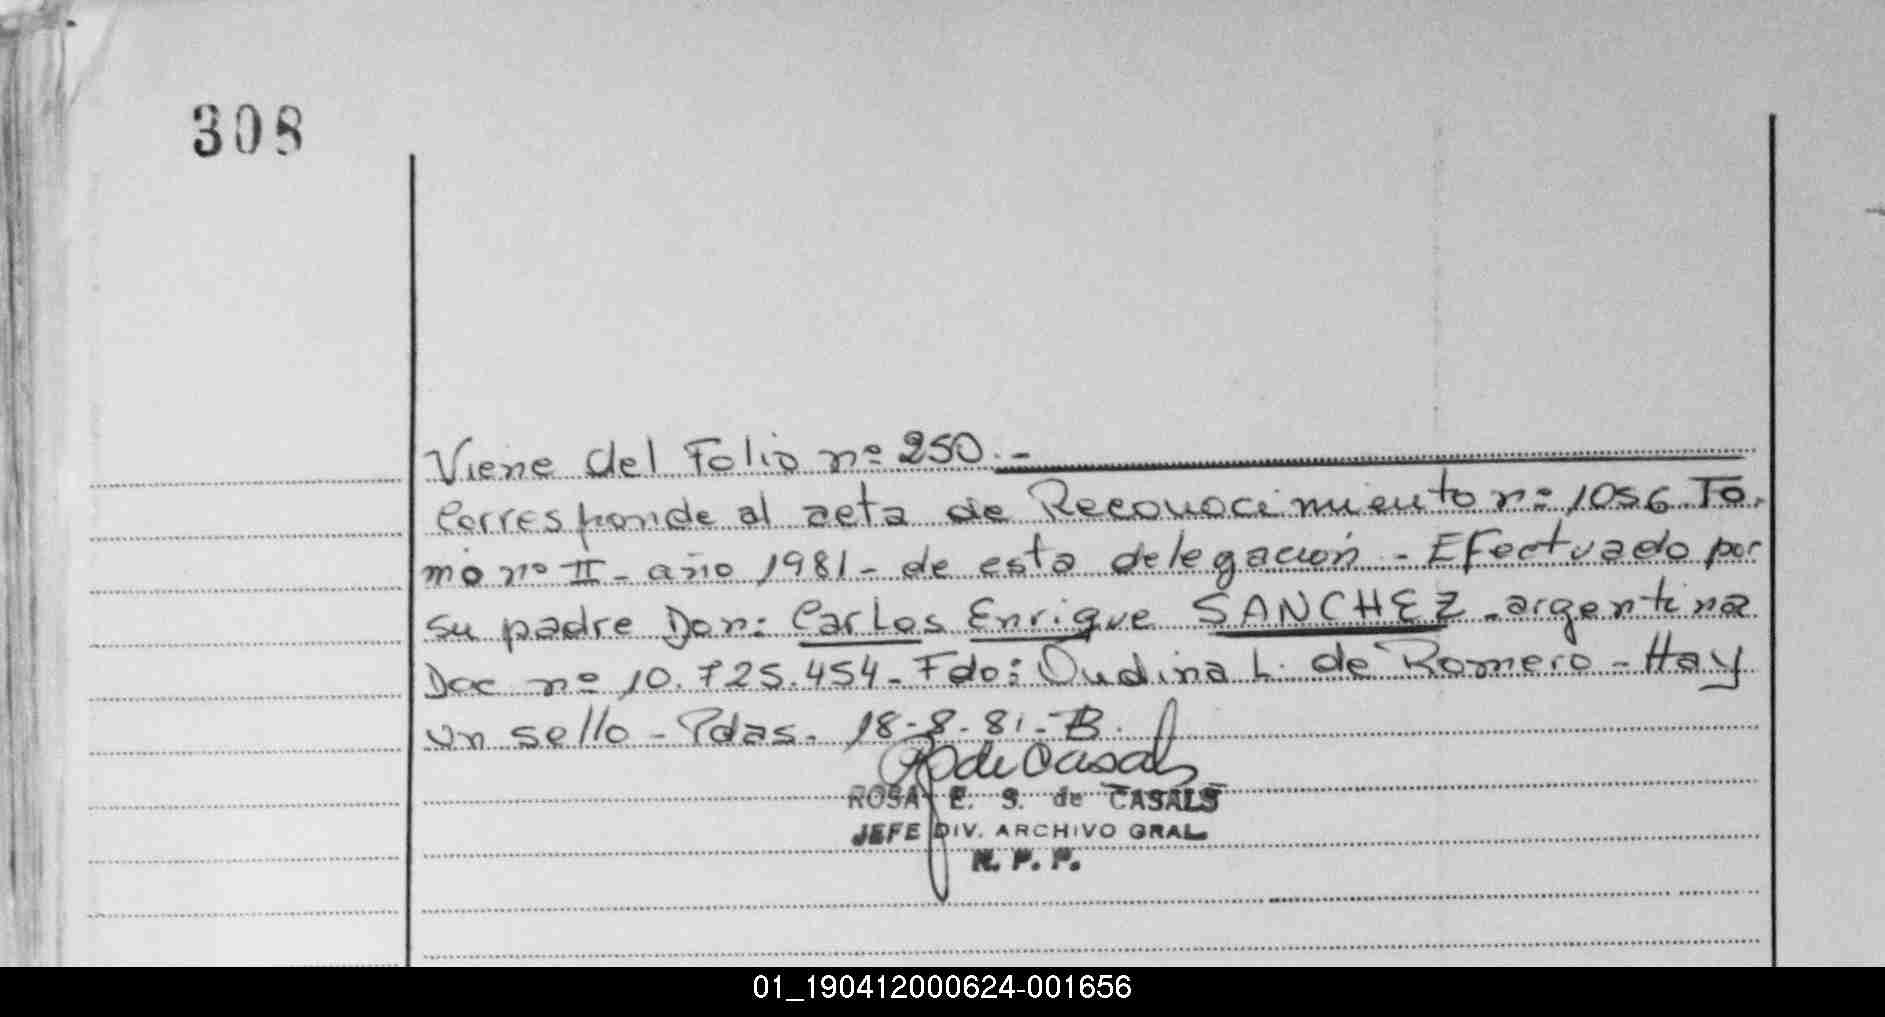 308
Viene del Folio nº 250.-
Corresponde al acta de Reconocimiento nº 1056 To.
mo nº II - año 1981 - de esta delegación - Efectuado por
su padre Don: Carlos Enrique SANCHEZ - argentina
Doc nº 10.725.454 - Fdo: Oudina L. de Romero - Hay
un sello - Pdas. 18-8-81.-B.
de Casals
ROSA E. S. de CASALS
JEFE DIV. ARCHIVO GRAL.
R. P. P.
01_190412000624-001656